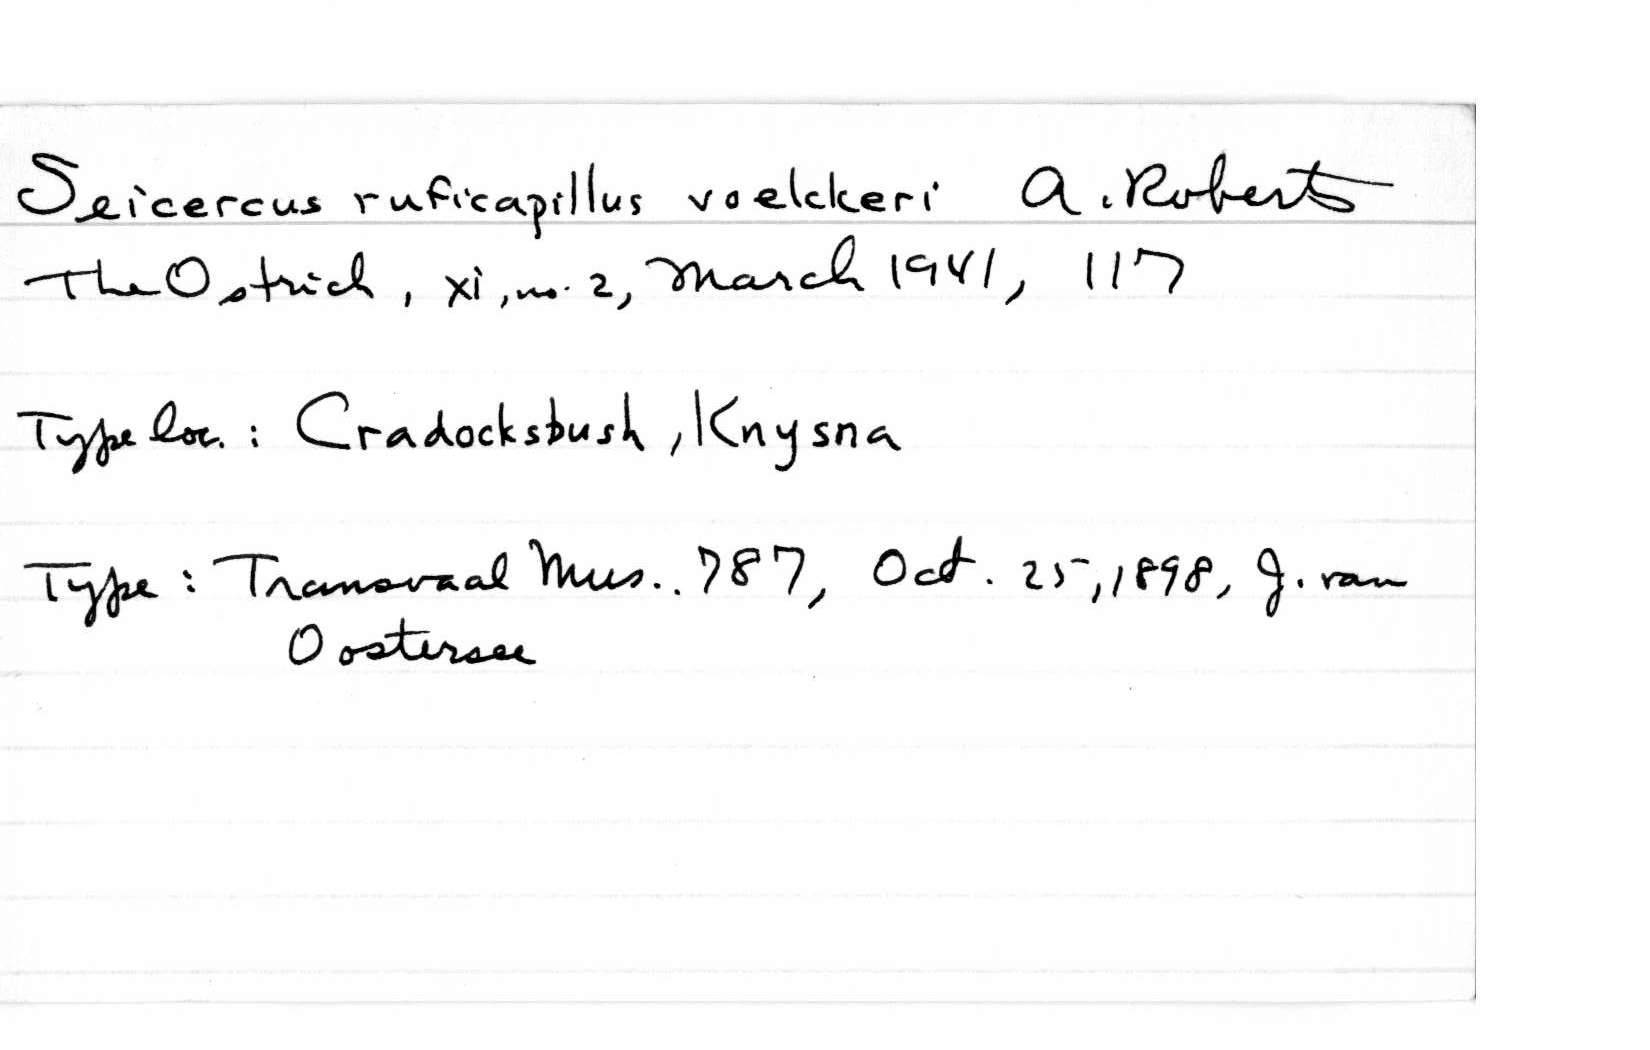 Seicercus ruficapillus voelckeri A. Roberts
The Ostrich, xi, no. 2, March 1941, 117
Type loc. : Cradocksbush, Knysna
Type : Transvaal Mus.. 787, Oct. 25, 1898, J. van
Oostersee